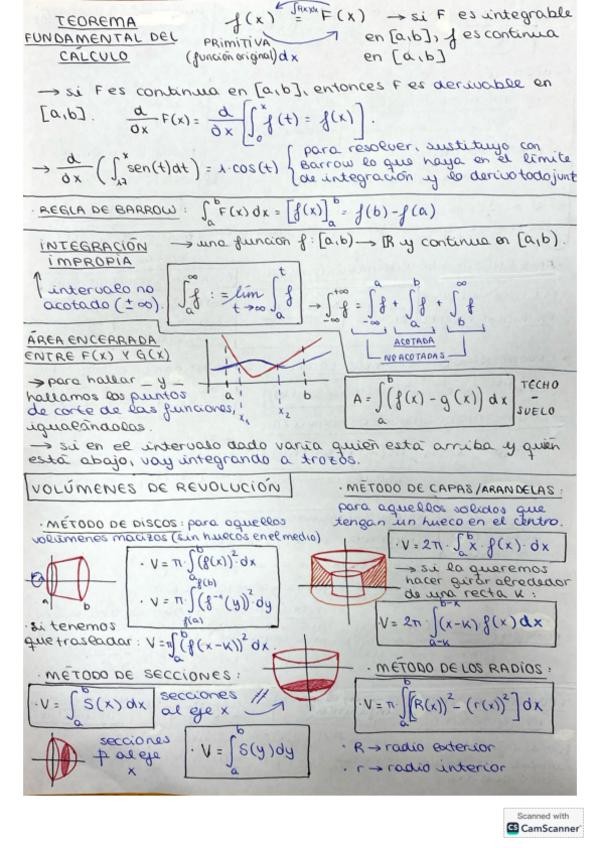 TEOREMA
FUNDAMENTAL DEL
CÁLCULO
f(x) ∫f(x)dx = F(x)
PRIMITIVA
(función original) dx
→ si F es integrable
en [a,b], f es continua
en [a,b]
→ si F es continua en [a,b], entonces F es derivable en
[a,b]. d/dx F(x) = d/dx [∫₀ˣ f(t) = f(x)].
→ d/dx (∫₁₇ˣ sen(t)dt) = 1·cos(t) { para resolver, sustituyo con
Barrow lo que haya en el límite
de integración y lo derivo todo junt
· REGLA DE BARROW: ∫ₐᵇ F(x)dx = [f(x)]ₐᵇ = f(b) - f(a)
INTEGRACIÓN
IMPROPIA
→ una función f: [a,b) → ℝ y continua en [a,b).
↑ intervalo no
acotado (±∞).
∫ₐ^∞ f := lím t→∞ ∫ₐᵗ f
→ ∫₋∞^+∞ f = ∫₋∞ᵃ f + ∫ₐᵇ f + ∫_b^∞ f
ACOTADA
NO ACOTADAS
ÁREA ENCERRADA
ENTRE F(X) Y G(X)
→ para hallar _ y _
hallamos los puntos
de corte de las funciones,
igualándolas.
a x₁ x₂ b
A = ∫ₐᵇ (f(x) - g(x)) dx
TECHO
-
SUELO
→ si en el intervalo dado varía quién está arriba y quién
está abajo, voy integrando a trozos.
VOLÚMENES DE REVOLUCIÓN
· MÉTODO DE DISCOS: para aquellos
volúmenes macizos (sin huecos en el medio)
a b
· V = π·∫ₐᵇ (f(x))²·dx
· V = π·∫_f(a)^f(b) (f⁻¹(y))²·dy
· si tenemos
que trasladar: V = π∫ₐᵇ (f(x-K))² dx.
· MÉTODO DE CAPAS/ARANDELAS:
para aquellos sólidos que
tengan un hueco en el centro.
· V = 2π·∫ₐᵇ x·f(x)·dx
→ si la queremos
hacer girar alrededor
de una recta K:
V = 2π ∫_a-K^b-K (x-K) f(x) dx
· MÉTODO DE SECCIONES:
· V = ∫ₐᵇ S(x) dx
secciones //
al eje x
secciones
al eje
x
· V = ∫ₐᵇ S(y) dy
· MÉTODO DE LOS RADIOS:
· V = π·∫ₐᵇ [(R(x))² - (r(x))²] dx
· R → radio exterior
· r → radio interior
Scanned with
CS CamScanner